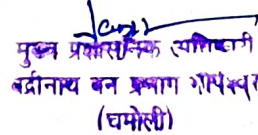 मुख्य प्रशासनिक अधिकारी
बद्रीनाथ वन प्रभाग गोपेश्वर
(चमोली)